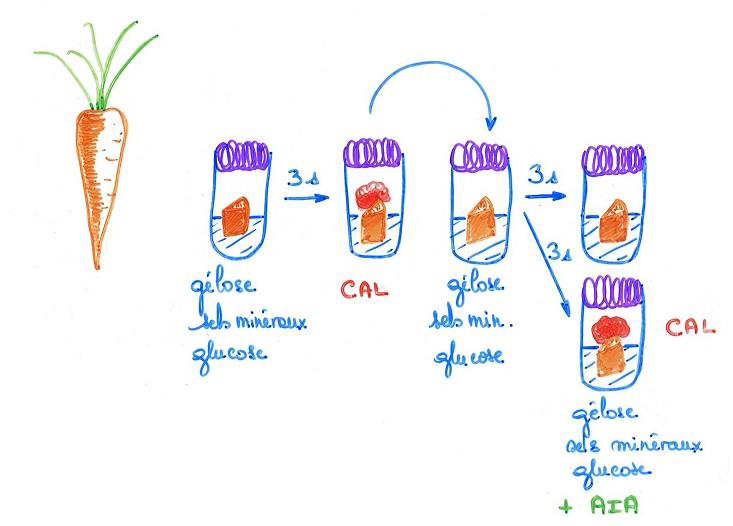 3s
3s
3s
gélose
sels minéraux
glucose
CAL
gélose
sels min.
glucose
CAL
gélose
sels minéraux
glucose
+ AIA